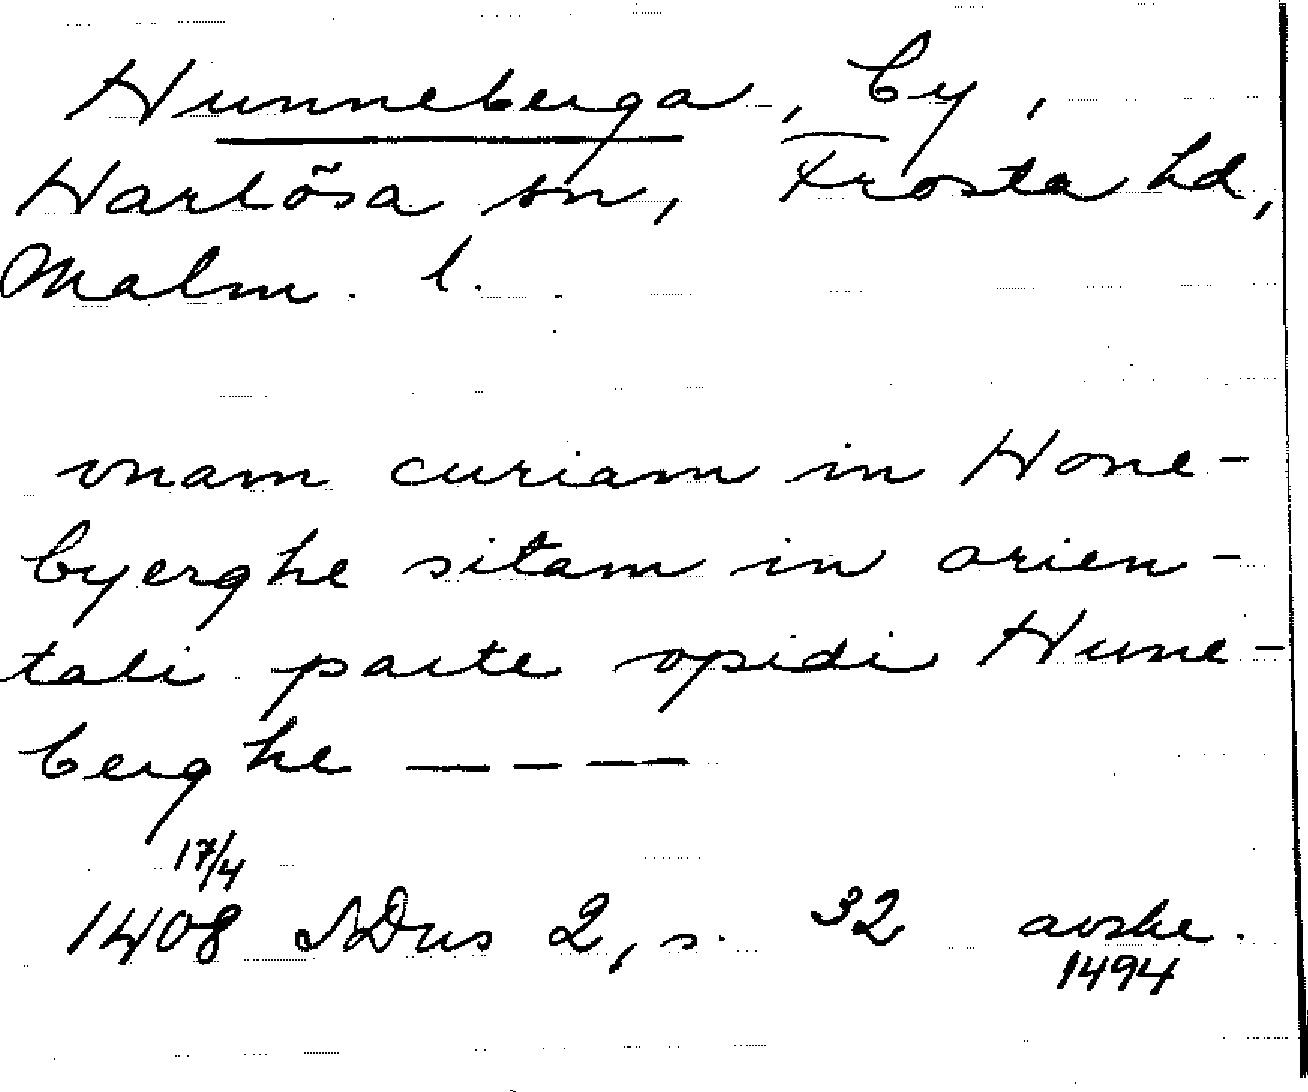 Hunneberga, by,
Harlösa sn, Frosta hd,
Malm. l.
vnam curiam in Hone-
byerghe sitam in orien-
tali parte opidi Hune-
berghe – – –
17/4
1408 SDns 2, s. 32 avskr.
1494